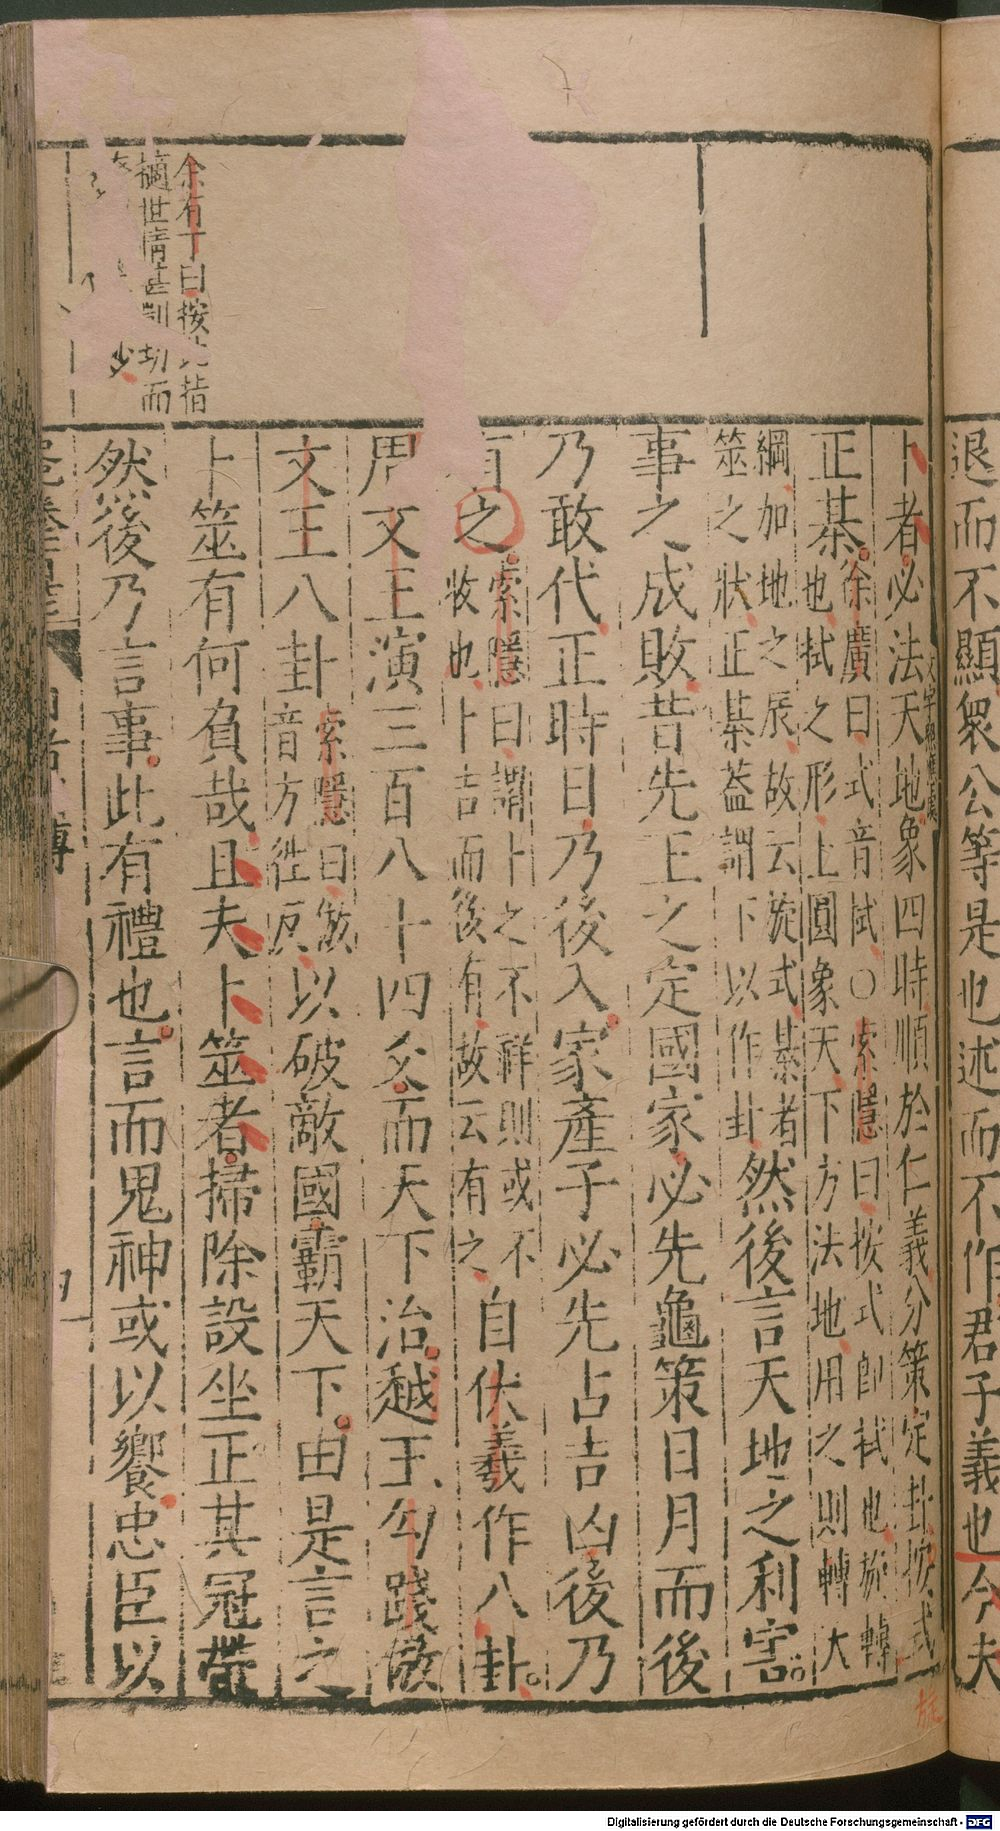 退而不顯衆公等是也述而不作君子義也今夫
卜者必法天地象四時順於仁義分策定卦按式
正棊徐廣曰式音拭○索隱曰按式卽栻也旋轉
也拭之形上圓象天下方法地用之則轉大
綱加地之辰故云旋式棊者
筮之狀正棊蓋謂下以作卦然後言天地之利害
事之成敗昔先王之定國家必先龜策日月而後
乃敢代正時日乃後入家產子必先占吉凶後乃
有之索隱曰謂卜之不祥則或不
收也卜吉而後有故云有之自伏羲作八卦
周文王演三百八十四爻而天下治越王勾踐倣
文王八卦索隱曰倣
音方徃反以破敵國霸天下由是言之
卜筮有何負哉且夫卜筮者掃除設坐正其冠帶
然後乃言事此有禮也言而鬼神或以饗忠臣以
余有丁曰按此指
擿世情甚剴切而
少
旋
Digitalisierung gefördert durch die Deutsche Forschungsgemeinschaft - DFG